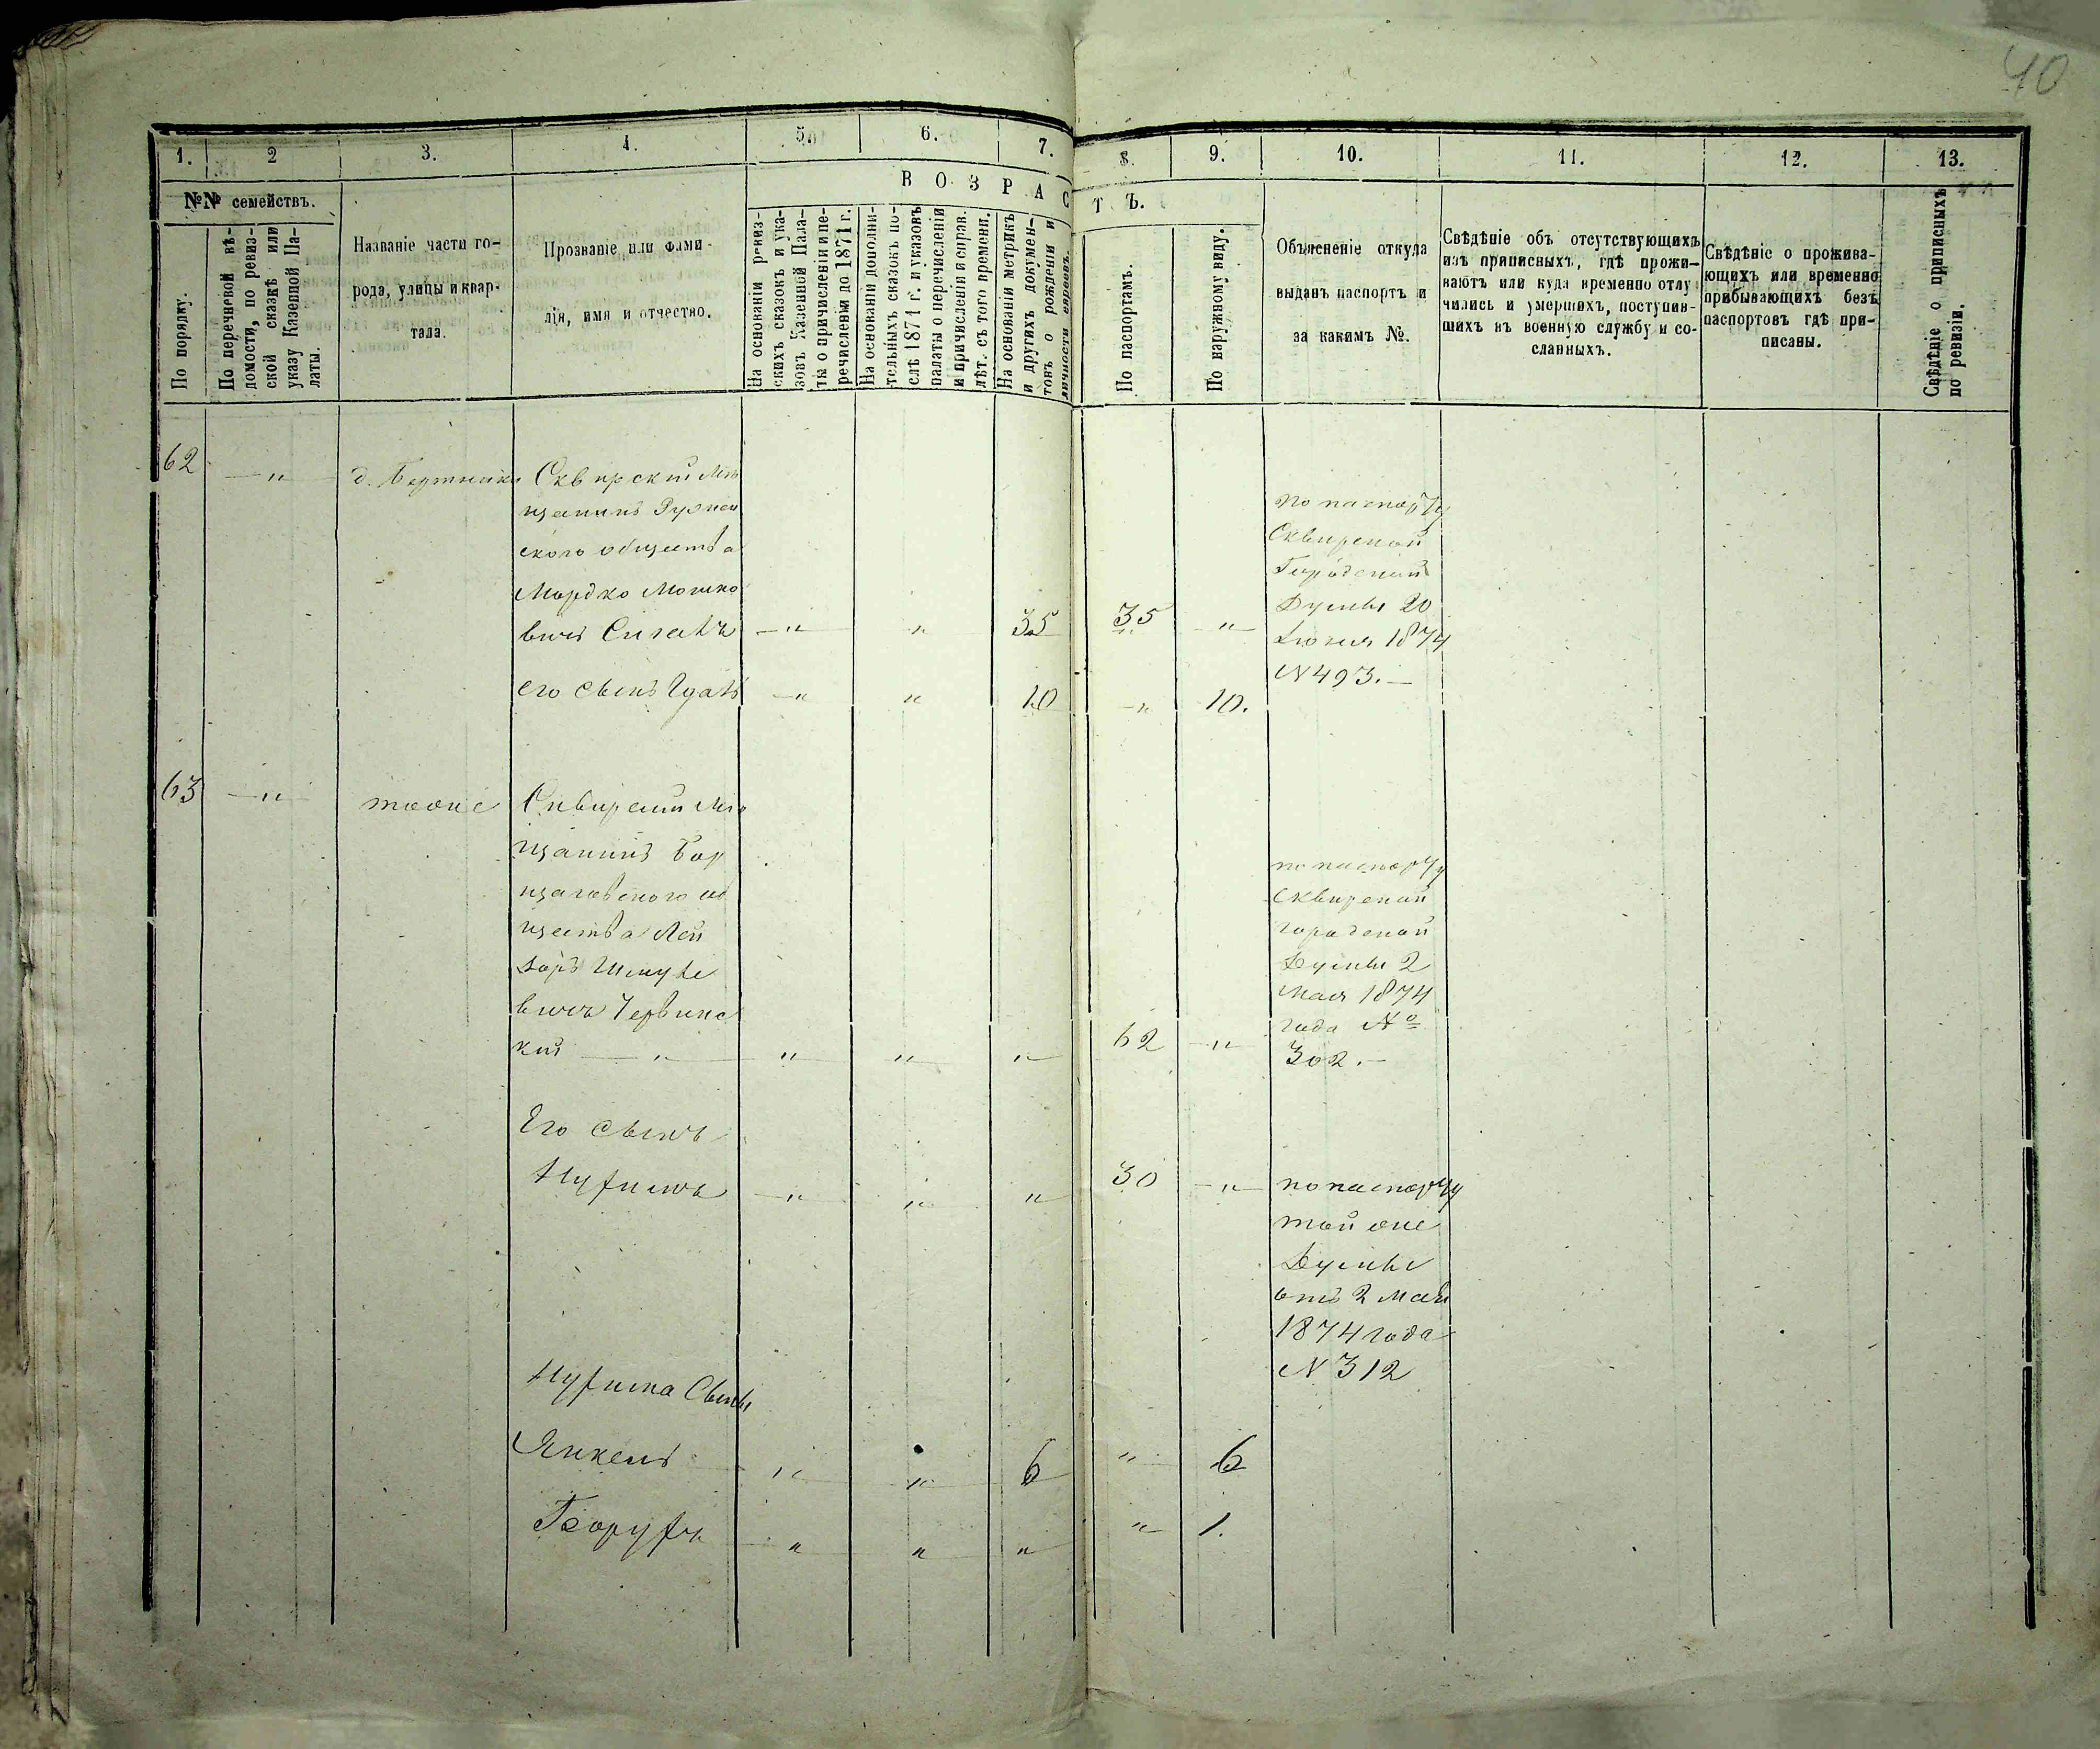 40
1. 2 3. 4. 5. 6. 7. 8. 9. 10. 11. 12. 13.
№№ семействъ.
По порядку.
По перечневой вѣ-
домости, по ревиз-
ской сказкѣ или
указу Казенной Па-
латы.
Названіе части го-
рода, улицы и квар-
тала.
Прозваніе или фами-
лія, имя и отчество.
ВОЗРАСТЪ.
На основаніи ревиз-
скихъ сказокъ и ука-
зовъ Казенной Пала-
ты о причисленіи и пе-
речисленіи до 1871 г.
На основаніи дополни-
тельныхъ сказокъ по-
слѣ 1871 г. и указовъ
палаты о перечисленіи
и причисленіи и справ.
лѣт. съ того времени.
На основаніи метрикъ
и другихъ докумен-
товъ о рожденіи и
личности евреевъ.
По паспортамъ.
По наружному виду.
Объясненіе откуда
выданъ паспортъ и
за какимъ №.
Свѣдѣніе объ отсутствующихъ
изъ приписныхъ, гдѣ прожи-
ваютъ или куда временно отлу
чились и умершихъ, поступив-
шихъ въ военную службу и со-
сланныхъ.
Свѣдѣніе о прожива-
ющихъ или временно
прибывающихъ безъ
паспортовъ гдѣ при-
писаны.
Свѣдѣніе о приписныхъ
по ревизіи.
62 — " — д. Бертники
Сквирскій Мѣ
щанинъ Ружин
ского общества
Мордко Мошко
вичъ Сигалъ — " — " 35 35 — " —
его сынъ — " — " 10 — " 10.
по паспорту
Сквирской
Городской
Думы 20
Іюня 1874
N 493. —
63 — " — тоже
Сквирскій Мѣ
щанинъ Бор
щаговского об
щества Лей
зоръ Шмуле
вичъ Червинс
кій — " — " — " — " — 62 — " —
по паспорту
Сквирской
городской
Думы 2
Мая 1874
года №
302. —
Его сынъ
Нухимъ — " — " — " 30 — " —
по паспорту
той же
Думы
отъ 2 Мая
1874 года
N 312
Нухима Сыны
Янкель — " — " 6 " 6
Борухъ — " — " — " " 1.